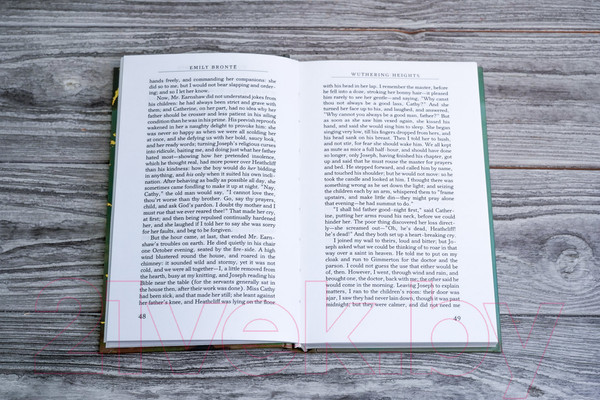 EMILY BRONTË
hands freely, and commanding her companions: she
did so to me, but I would not bear slapping and order-
ing; and so I let her know.
Now, Mr. Earnshaw did not understand jokes from
his children: he had always been strict and grave with
them; and Catherine, on her part, had no idea why her
father should be crosser and less patient in his ailing
condition than he was in his prime. His peevish reproofs
wakened in her a naughty delight to provoke him: she
was never so happy as when we were all scolding her
at once, and she defying us with her bold, saucy look,
and her ready words; turning Joseph's religious curses
into ridicule, baiting me, and doing just what her father
hated most—showing how her pretended insolence,
which he thought real, had more power over Heathcliff
than his kindness: how the boy would do her bidding
in anything, and his only when it suited his own incli-
nation. After behaving as badly as possible all day, she
sometimes came fondling to make it up at night. "Nay,
Cathy," the old man would say, "I cannot love thee,
thou'rt worse than thy brother. Go, say thy prayers,
child, and ask God's pardon. I doubt thy mother and I
must rue that we ever reared thee!" That made her cry,
at first; and then being repulsed continually hardened
her, and she laughed if I told her to say she was sorry
for her faults, and beg to be forgiven.
But the hour came, at last, that ended Mr. Earn-
shaw's troubles on earth. He died quietly in his chair
one October evening, seated by the fire-side. A high
wind blustered round the house, and roared in the
chimney: it sounded wild and stormy, yet it was not
cold, and we were all together—I, a little removed from
the hearth, busy at my knitting, and Joseph reading his
Bible near the table (for the servants generally sat in
the house then, after their work was done). Miss Cathy
had been sick, and that made her still; she leant against
her father's knee, and Heathcliff was lying on the floor
48
WUTHERING HEIGHTS
with his head in her lap. I remember the master, before
he fell into a doze, stroking her bonny hair—it pleased
him rarely to see her gentle—and saying, "Why canst
thou not always be a good lass, Cathy?" And she
turned her face up to his, and laughed, and answered,
"Why cannot you always be a good man, father?" But
as soon as she saw him vexed again, she kissed his
hand, and said she would sing him to sleep. She began
singing very low, till his fingers dropped from hers, and
his head sank on his breast. Then I told her to hush,
and not stir, for fear she should wake him. We all kept
as mute as mice a full half-hour, and should have done
so longer, only Joseph, having finished his chapter, got
up and said that he must rouse the master for prayers
and bed. He stepped forward, and called him by name,
and touched his shoulder; but he would not move: so he
took the candle and looked at him. I thought there was
something wrong as he set down the light; and seizing
the children each by an arm, whispered them to "frame
upstairs, and make little din—they might pray alone
that evening—he had summut to do."
"I shall bid father good-night first," said Cathe-
rine, putting her arms round his neck, before we could
hinder her. The poor thing discovered her loss direct-
ly—she screamed out—"Oh, he's dead, Heathcliff!
he's dead!" And they both set up a heart-breaking cry.
I joined my wail to theirs, loud and bitter; but Jo-
seph asked what we could be thinking of to roar in that
way over a saint in heaven. He told me to put on my
cloak and run to Gimmerton for the doctor and the
parson. I could not guess the use that either would be
of, then. However, I went, through wind and rain, and
brought one, the doctor, back with me; the other said he
would come in the morning. Leaving Joseph to explain
matters, I ran to the children's room: their door was
ajar, I saw they had never lain down, though it was past
midnight; but they were calmer, and did not need me
49